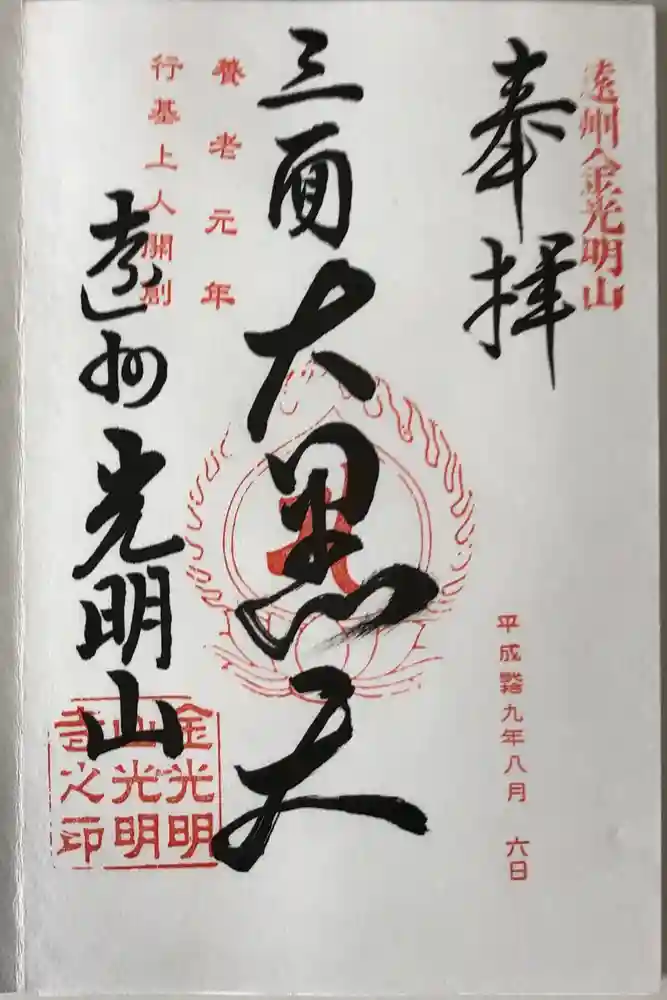 遠州金光明山
奉拝
平成廿九年八月 六日
三面大黒天
養老元年
行基上人開創
遠州 光明山
金光明
山光明
寺之印